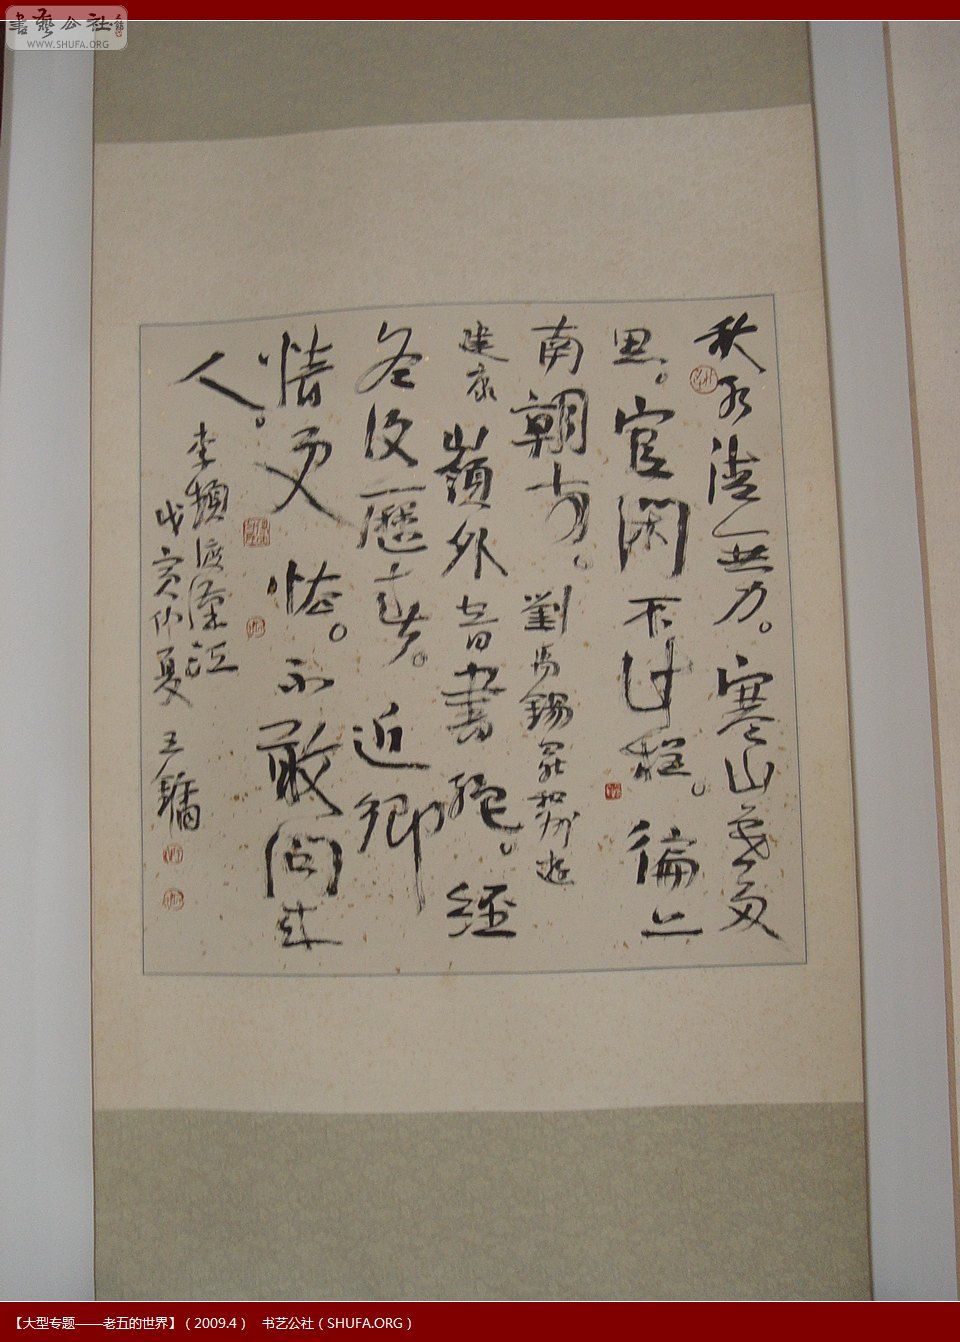 書藝公社
WWW.SHUFA.ORG
秋水清無力。寒山暮多
思。官閑不計程。徧上
南朝寺。劉禹錫罷和州遊
建康 嶺外音書絕。經
冬復歷春。近鄉
情更怯。不敢問來
人。李頻渡漢江
戊寅仲夏 王鏞
【大型专题——老五的世界】（2009.4） 书艺公社（SHUFA.ORG）